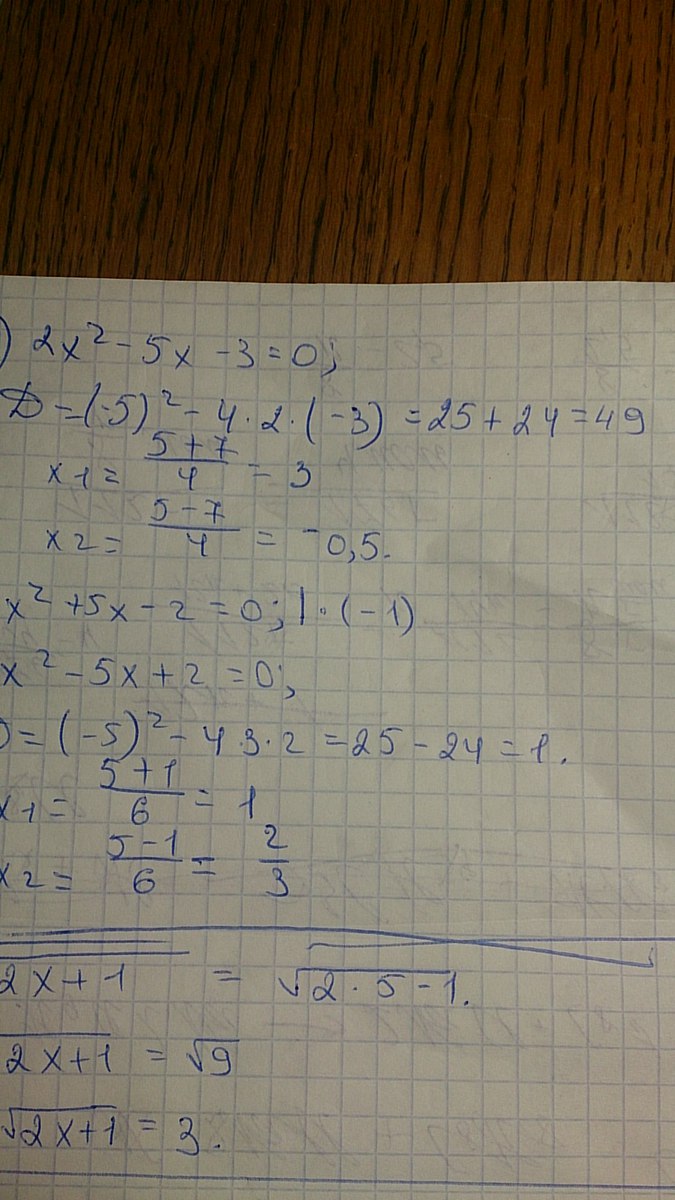 ) 2x² - 5x - 3 = 0;
D = (-5)² - 4 · 2 · (-3) = 25 + 24 = 49
x1 = (5 + 7)/4 = 3
x2 = (5 - 7)/4 = -0,5.
x² + 5x - 2 = 0; | · (-1)
x² - 5x + 2 = 0;
D = (-5)² - 4 · 3 · 2 = 25 - 24 = 1.
x1 = (5 + 1)/6 = 1
x2 = (5 - 1)/6 = 2/3
√(2x + 1) = √(2 · 5 - 1).
√(2x + 1) = √9
√(2x + 1) = 3.